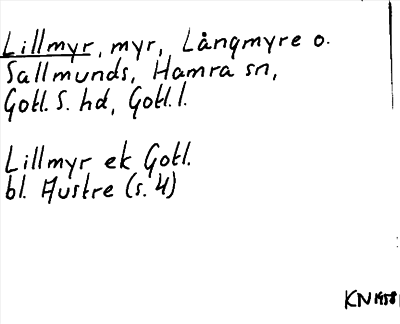 Lillmyr, myr, Långmyre o.
Sallmunds, Hamra sn,
Gotl. S. hd, Gotl. l.
Lillmyr ek Gotl.
bl. Austre (s. 4)
KN 1958